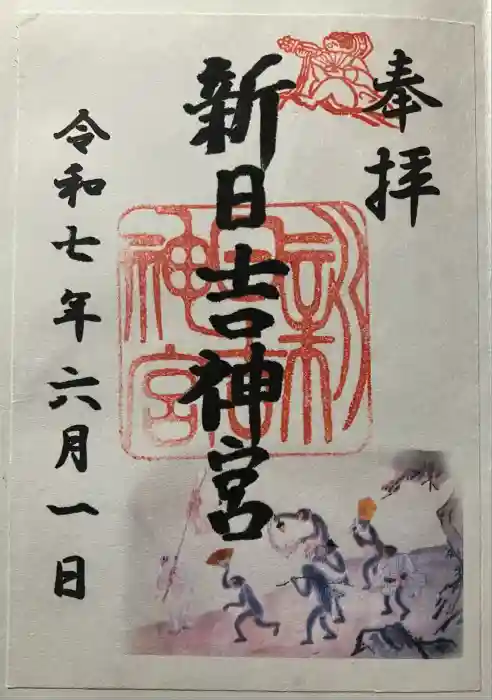 奉拝
新日吉神宮
令和七年六月一日